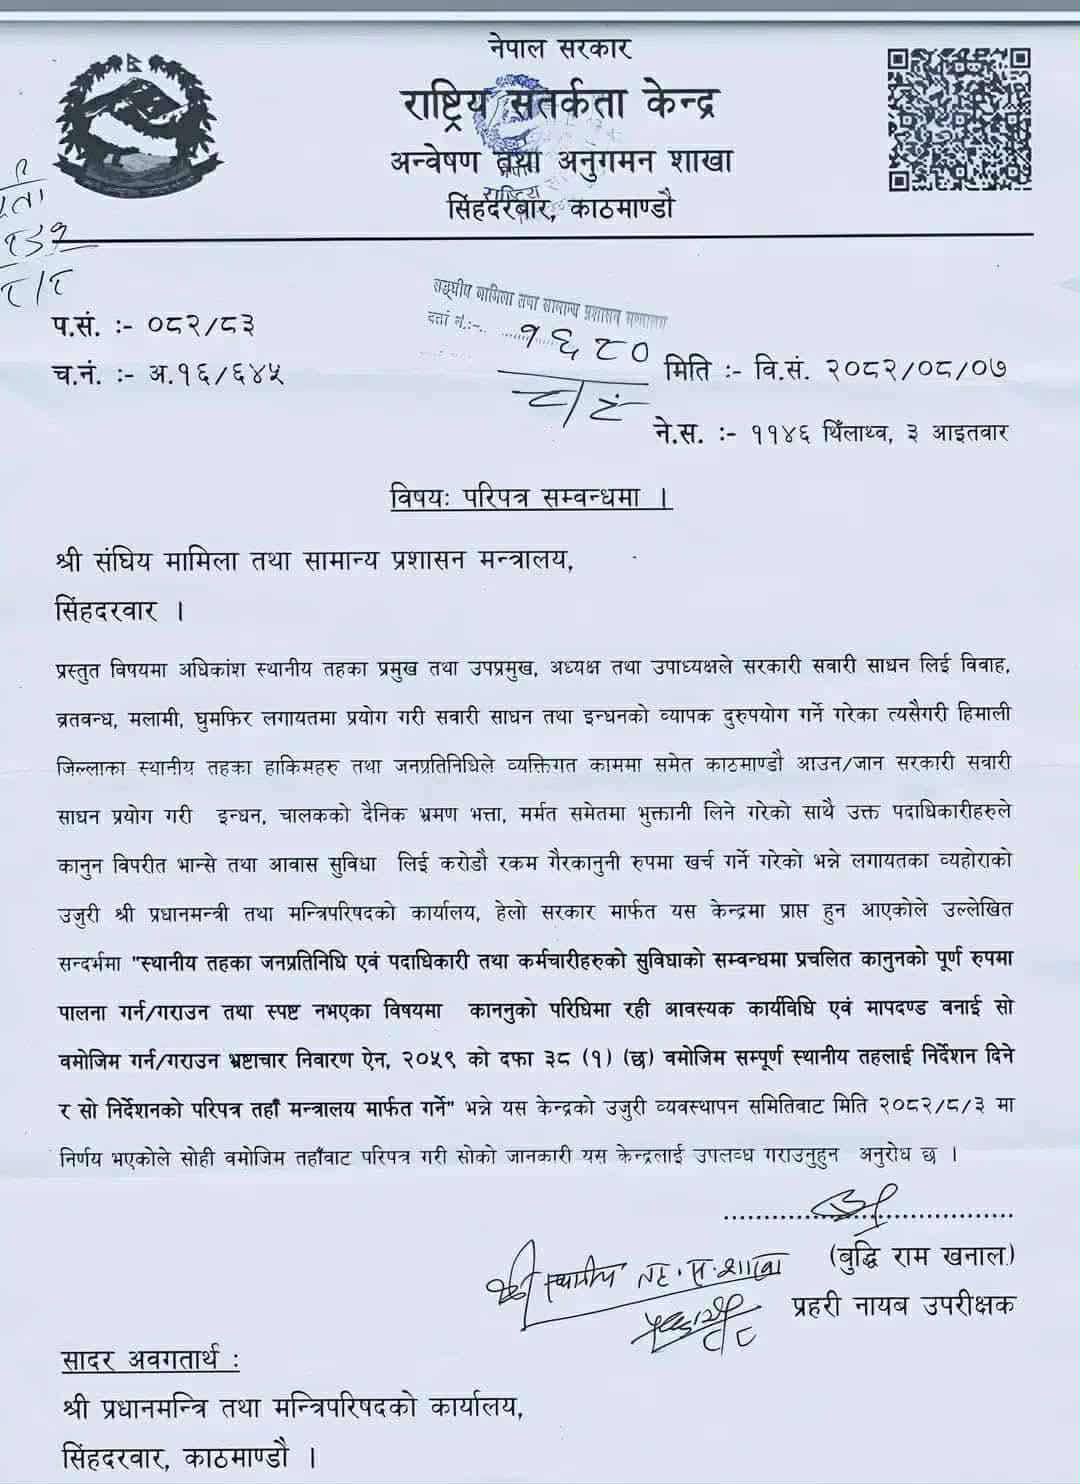 नेपाल सरकार
राष्ट्रिय सतर्कता केन्द्र
अन्वेषण तथा अनुगमन शाखा
सिंहदरबार, काठमाण्डौ
राष्ट्रिय
सङ्घीय मामिला तथा सामान्य प्रशासन मन्त्रालय
दर्ता नं.:-
१६८०
प.सं. :- ०८२/८३
च.नं. :- अ.१६/६४५
मिति :- वि.सं. २०८२/०८/०७
ने.स. :- ११४६ थिँलाथ्व, ३ आइतवार
विषय: परिपत्र सम्वन्धमा ।
श्री संघिय मामिला तथा सामान्य प्रशासन मन्त्रालय,
सिंहदरवार ।
प्रस्तुत विषयमा अधिकांश स्थानीय तहका प्रमुख तथा उपप्रमुख, अध्यक्ष तथा उपाध्यक्षले सरकारी सवारी साधन लिई विवाह,
व्रतवन्ध, मलामी, घुमफिर लगायतमा प्रयोग गरी सवारी साधन तथा इन्धनको व्यापक दुरुपयोग गर्ने गरेका त्यसैगरी हिमाली
जिल्लाका स्थानीय तहका हाकिमहरु तथा जनप्रतिनिधिले व्यक्तिगत काममा समेत काठमाण्डौ आउन/जान सरकारी सवारी
साधन प्रयोग गरी इन्धन, चालकको दैनिक भ्रमण भत्ता, मर्मत समेतमा भुक्तानी लिने गरेको साथै उक्त पदाधिकारीहरुले
कानुन विपरीत भान्से तथा आवास सुविधा लिई करोडौ रकम गैरकानुनी रुपमा खर्च गर्ने गरेको भन्ने लगायतका व्यहोराको
उजुरी श्री प्रधानमन्त्री तथा मन्त्रिपरिषदको कार्यालय, हेलो सरकार मार्फत यस केन्द्रमा प्राप्त हुन आएकोले उल्लेखित
सन्दर्भमा "स्थानीय तहका जनप्रतिनिधि एवं पदाधिकारी तथा कर्मचारीहरुको सुविघाको सम्वन्धमा प्रचलित कानुनको पूर्ण रुपमा
पालना गर्न/गराउन तथा स्पष्ट नभएका विषयमा काननुको परिधिमा रही आवस्यक कार्यविधि एवं मापदण्ड वनाई सो
वमोजिम गर्न/गराउन भ्रष्टाचार निवारण ऐन, २०५९ को दफा ३८ (१) (छ) वमोजिम सम्पूर्ण स्थानीय तहलाई निर्देशन दिने
र सो निर्देशनको परिपत्र तहाँ मन्त्रालय मार्फत गर्ने" भन्ने यस केन्द्रको उजुरी व्यवस्थापन समितिवाट मिति २०८२/८/३ मा
निर्णय भएकोले सोही वमोजिम तहाँवाट परिपत्र गरी सोको जानकारी यस केन्द्रलाई उपलव्ध गराउनुहुन अनुरोध छ ।
(बुद्धि राम खनाल)
प्रहरी नायब उपरीक्षक
सादर अवगतार्थ :
श्री प्रधानमन्त्रि तथा मन्त्रिपरिषदको कार्यालय,
सिंहदरवार, काठमाण्डौ ।